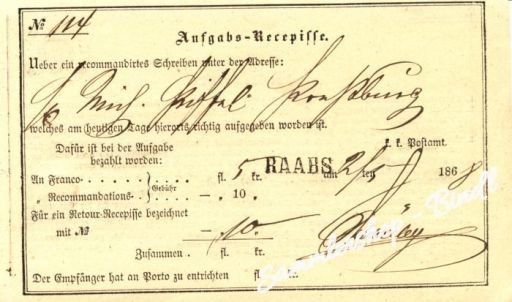 № 114
Aufgabs-Recepisse.
Ueber ein recommandirtes Schreiben unter der Adresse:
Mich. Preßburg
welches am heutigen Tage hierorts richtig aufgegeben worden ist.
Dafür ist bei der Aufgabe
bezahlt worden:
k. k. Postamt.
An Franco Gebühr fl. 5 kr. RAABS am 2/5 1868
„ Recommandations- Gebühr — „ 10 „
Für ein Retour-Recepisse bezeichnet
mit № — 10 —
Zusammen . fl. kr.
Der Empfänger hat an Porto zu entrichten fl. kr.
Sammlershop - Stadl